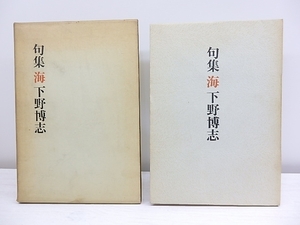 句集 海 下野博志
句集 海 下野博志